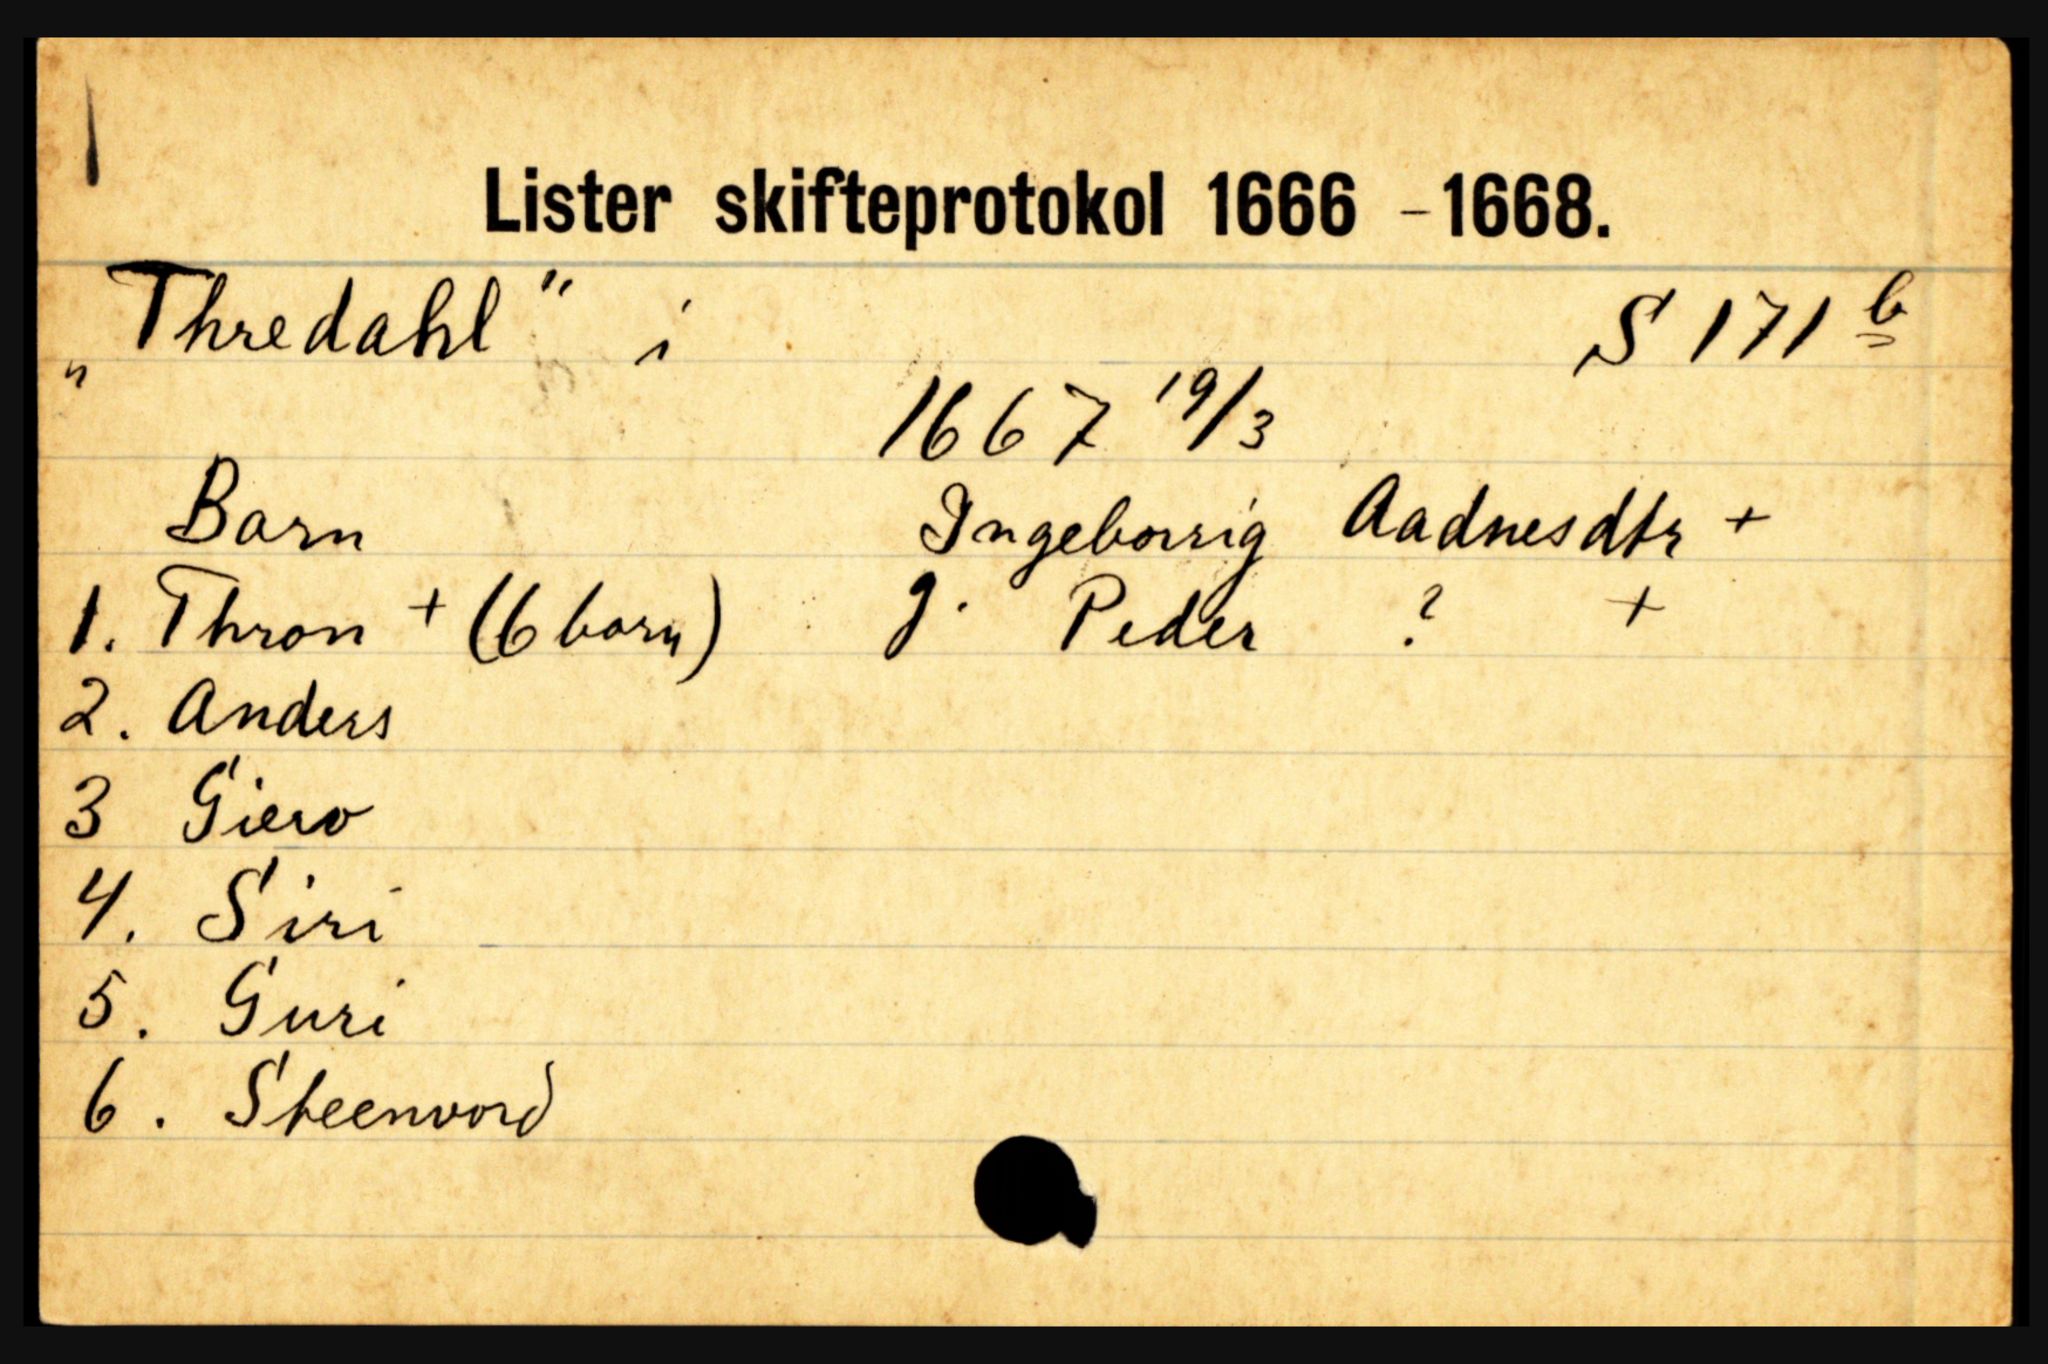 Lister skifteprotokol 1666 - 1668.
„Thredahl" i S 171 b
1667 19/3
Barn Ingeborrig Aadnesdtr +
1. Thron + (6 barn) g. Peder ? +
2. Anders
3 Giero
4. Siri
5. Guri
6. Steenvord